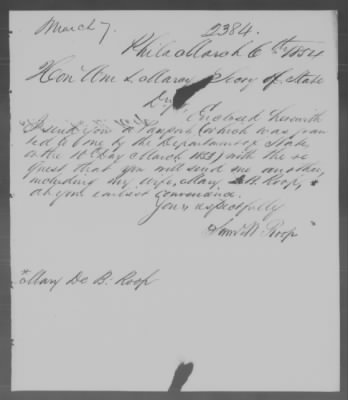 March 7.
2384.
Phila March 6th 1854
Hon Wm L Marcy Secry of State
Dr Sir, Enclosed herewith
I send you a Passport (which was gran
ted to me by the Department of State
on the 18 Day March 1853) with the re
quest that you will send me another,
including my wife, Mary De B. Roop, *
at your earliest convenience.
Yours respectfully
Saml W Roop
* Mary De B. Roop